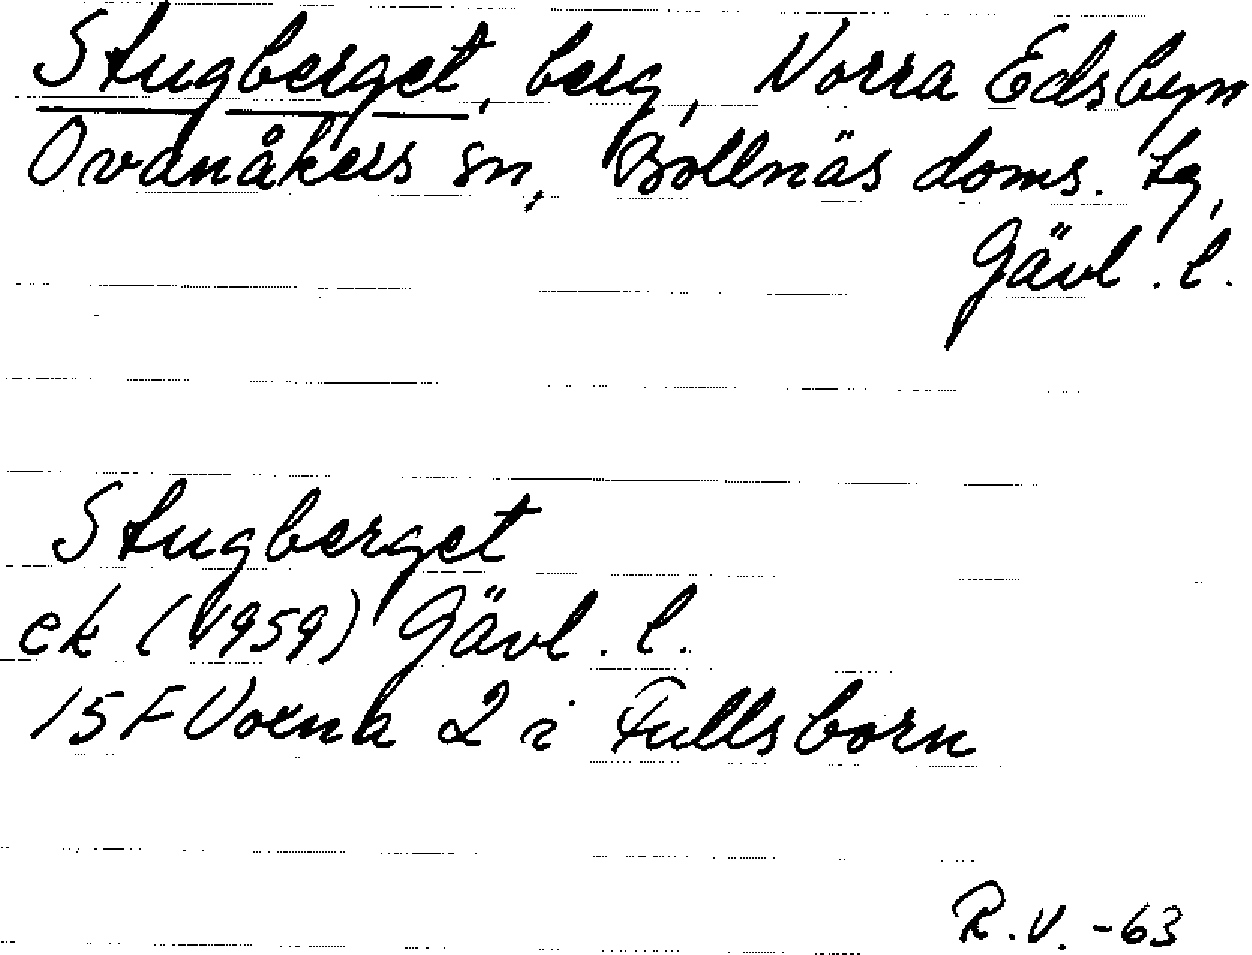 Stugberget, berg, Norra Edsbyn
Ovanåkers sn, Bollnäs doms. tg,
Gävl. l.
Stugberget
ek (1959) Gävl. l.
15 F Voxna 2 i Fullsborn
R.V. -63